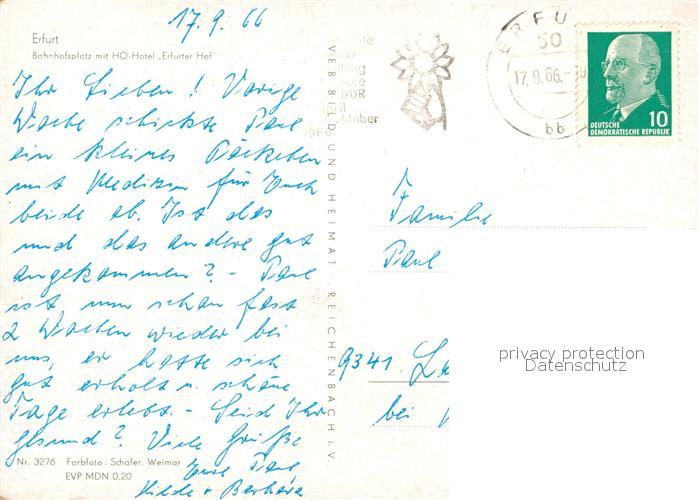 17.9.66
Erfurt
Bahnhofsplatz mit HO-Hotel „Erfurter Hof"
Ihr Lieben! Vorige
Woche schickte Paul
ein kleines Päckchen
mit Medizin für Euch
beide ab. Ist das
und das andere gut
angekommen? - Paul
ist nun schon fast
2 Wochen wieder bei
uns, er hatte sich
gut erholt u. schöne
Tage erlebt. - Seid Ihr
gesund? Viele Grüße
Eure Paul
Hilde + Barbara
Nr. 3276 Farbfoto: Schäfer, Weimar
EVP MDN 0,20
VEB BILD UND HEIMAT REICHENBACH i. V.
DDR
Oktober
1966
ERFU
50
17.9.66.-
bb
DEUTSCHE
DEMOKRATISCHE REPUBLIK
10
Familie
Paul
9341 
bei
privacy protection
Datenschutz